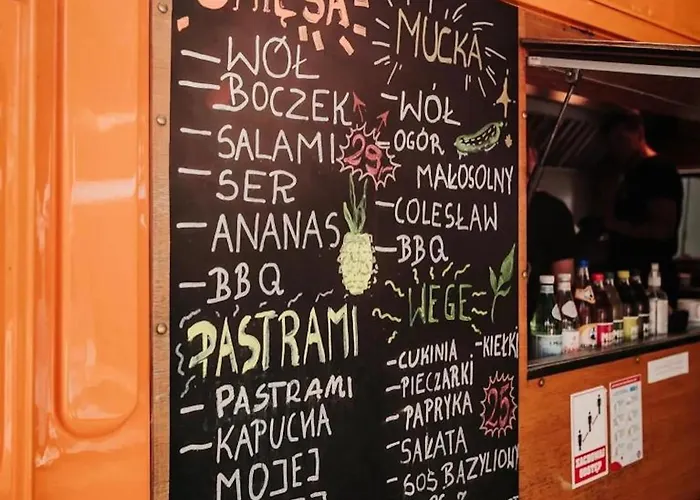 MUĆKA
- WÓŁ
- BOCZEK
- SALAMI
- SER
- ANANAS
- BBQ
29,-
- WÓŁ
- OGÓR MAŁOSOLNY
- COLESŁAW
- BBQ
PASTRAMI
- PASTRAMI
- KAPUCHA
MOJEJ
WEGE
- CUKINIA
- KIEŁKI
- PIECZARKI
- PAPRYKA
- SAŁATA
- SOS BAZYLIOWY
25,-
ZACHOWAJ
ODSTĘP